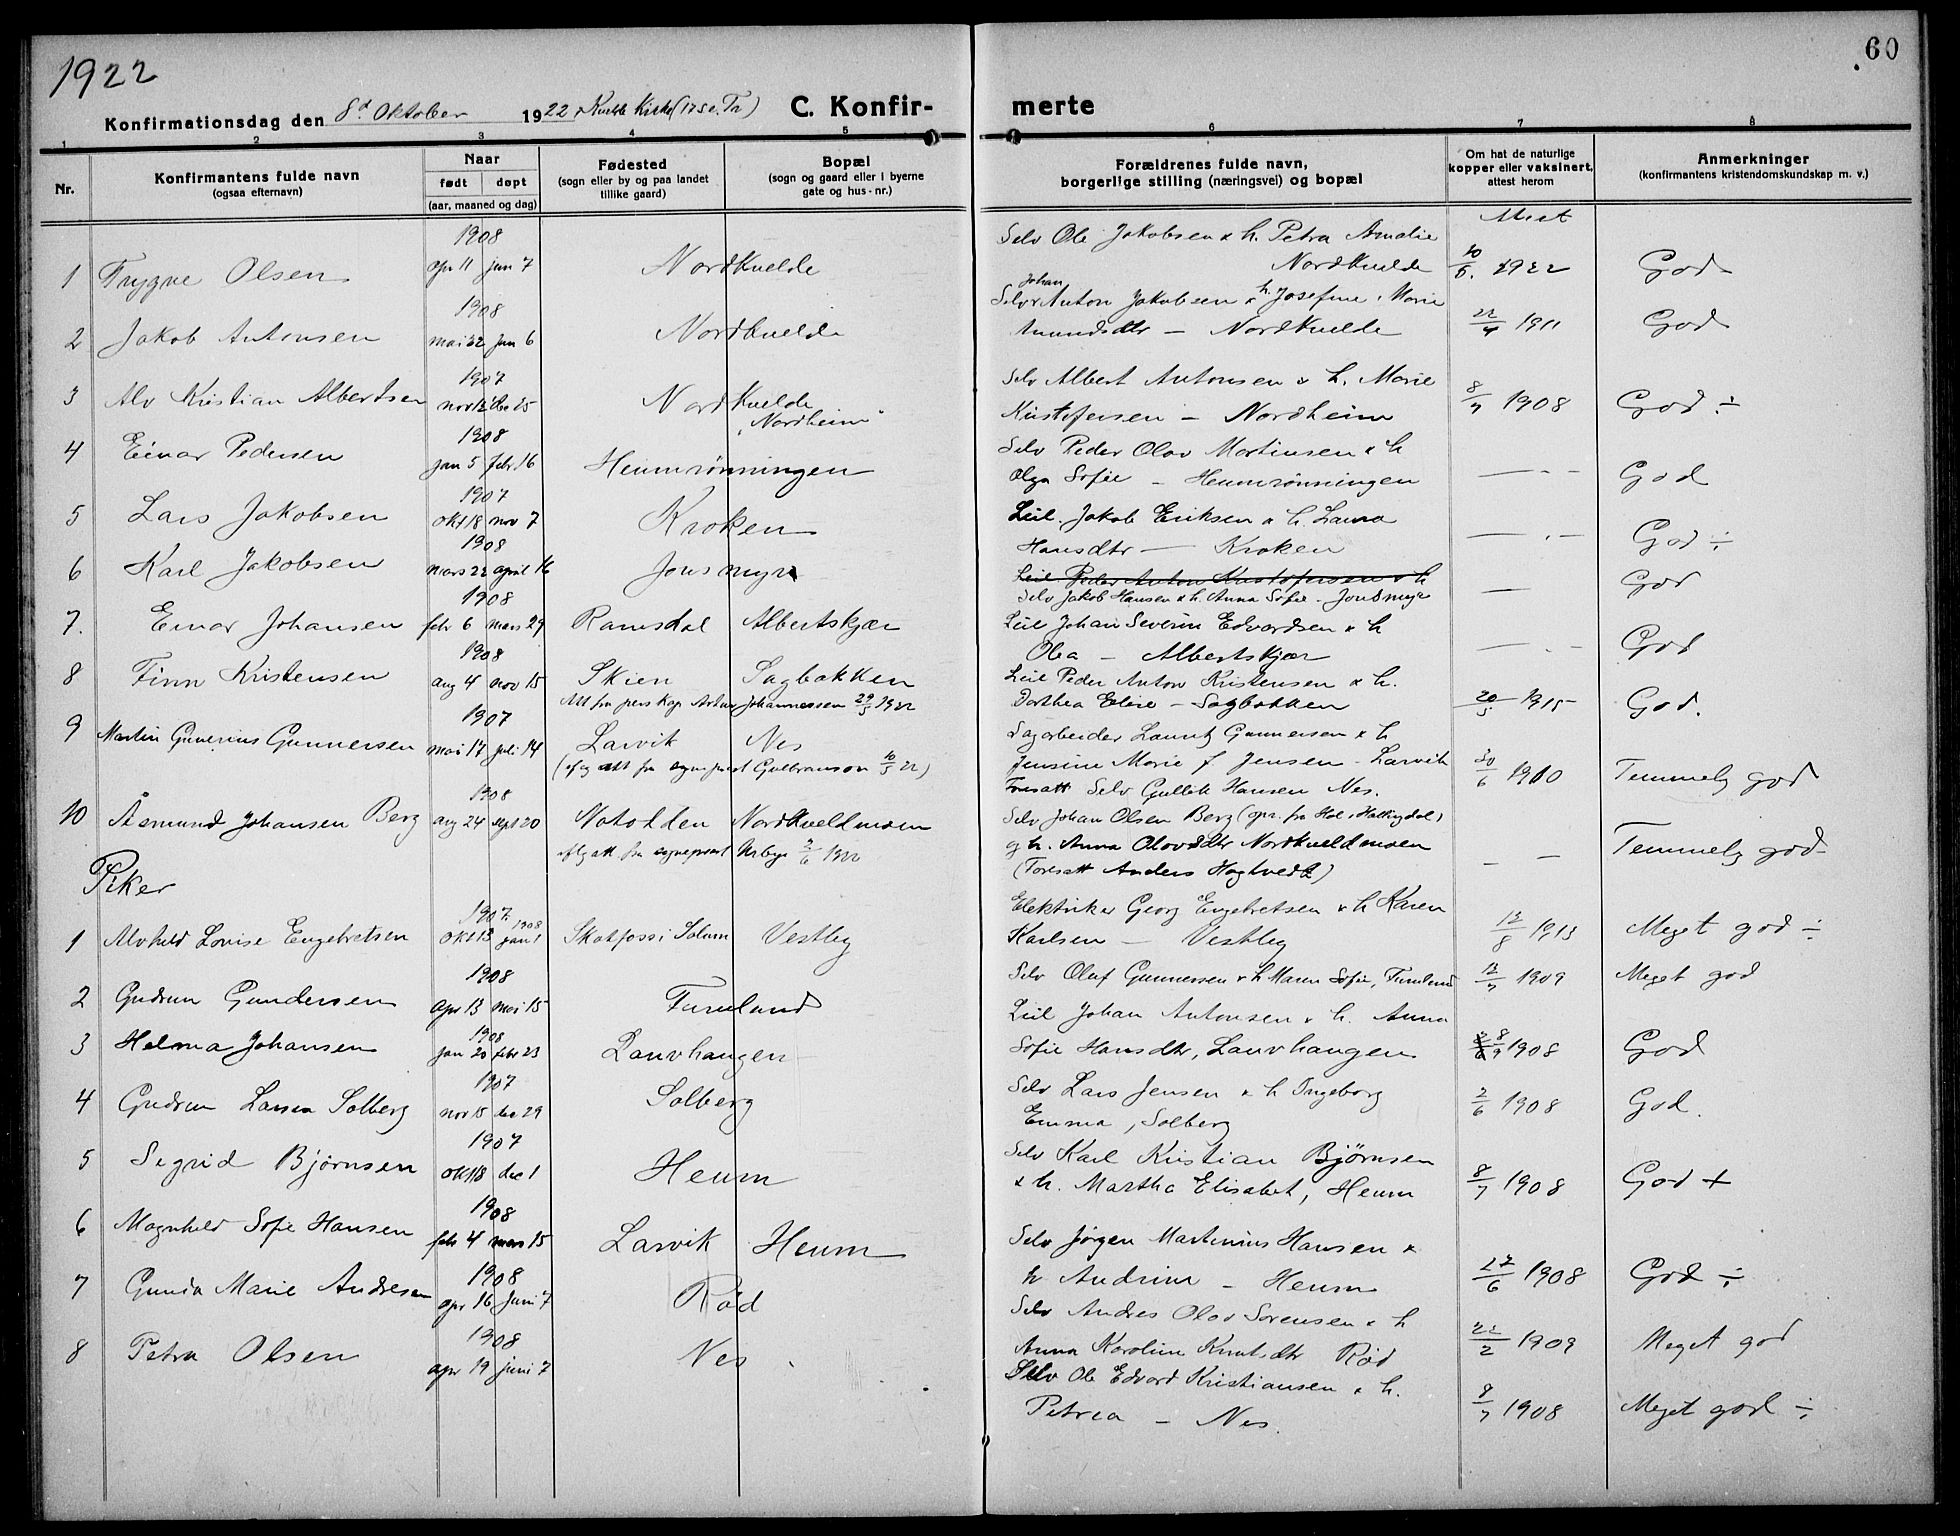 1922
60
Konfirmationsdag den 8d Oktober 1922 i Kvelde Kirke (17 S. e. Tr)
C. Konfir- merte
1 2 3 4 5 6 7 8
Nr.
Konfirmantens fulde navn
(ogsaa efternavn)
Naar
født døpt
(aar, maaned og dag)
Fødested
(sogn eller by og paa landet
tillike gaard)
Bopæl
(sogn og gaard eller i byerne
gate og hus-nr.)
Forældrenes fulde navn,
borgerlige stilling (næringsvei) og bopæl
Om hat de naturlige
kopper eller vaksinert,
attest herom
Anmerkninger
(konfirmantens kristendomskundskap m. v.)
1908
Selv Ole Jakobsen & h. Petra Amalie
1 Trygve Olsen apr 11 jun 7 Nordkvelde Nordkvelde 10/5. 1922 God
1908
Johan
Selv Anton Jakobsen & h. Josefine Marie
2 Jakob Antonsen mai 22 jun 6 Nordkvelde Amundsdtr — Nordkvelde 22/4 1911 God
1907
Selv Albert Antonsen & h. Marie
3 Alv Kristian Albertsen nov 12 des 25 Nordkvelde Kristofersen — Nordheim 8/7 1908 God ÷
"Nordheim"
1908
Selv Peder Olav Martinsen & h
4 Einar Pedersen jan 5 febr 16 Heumrønningen Olga Sofie — Heumrønningen — " — God
1907
Leil. Jakob Eriksen & h. Laura
5 Lars Jakobsen okt 18 nov 7 Kroken Hansdtr — Kroken — " — God ÷
1908
Leil Peder Anton Kristofersen & h
6 Karl Jakobsen mars 22 april 16 Jonsmyra Selv Jakob Hansen & h. Anna Sofie - Jonsmyr — God
1908
Leil Johan Severin Edvardsen & h
7. Einar Johansen febr 6 mars 29 Ramsdal Albertskjær Olea — Albertskjær — " — God
1908
Leil Peder Anton Kristensen & h.
8 Finn Kristensen aug 4 nov 15 Skien Sagbakken Dorthea Elise — Sagbakken 20/5 1915 God.
Att fra pers. kap. Artur Johannessen 29/5 1922
1907
Sagarbeider Lauritz Gunnersen & h
9 Martin Gunerius Gunnersen mai 17 juli 14 Larvik Nes Jensine Marie f Jensen - Larvik 30/6 1910 Temmelig god
(iflg att fra sogneprest Gulbranson 10/5 22)
Foresatt Selv Gullik Hansen Nes.
1908
10 Åsmund Johansen Berg aug 24 sept 20 Notodden Nordkveldmoen Selv Johan Olsen Berg (opr. fra Hol i Hallingdal)
iflg att fra sogneprest Urbye 2/6 1922
og h. Anna Olovsdtr Nordkveldmoen — — Temmelig god
(Foresatt Anders Hogtvedt)
Piker
1907 1908
Elektriker Georg Engebretsen & h Karen
1 Alvhild Lovise Engebretsen okt 13 jan 1 Skotfoss i Solum Vestby Karlsen — Vestby 12/8 1913 Meget god ÷
1908
2 Gudrun Gundersen apr 13 mai 15 Furulund Selv Olaf Gunnersen & h Maren Sofie, Furulund 12/7 1909 Meget god
1908
Leil Johan Antonsen & h. Anna
3 Helma Johansen jan 20 febr 23 Lauvhaugen Sofie Hansdtr, Lauvhaugen 8/9 1908 God
1907
Selv Lars Jensen & h Ingeborg
4 Gudrun Larsen Solberg nov 15 des 29 Solberg Emma, Solberg 2/6 1908 God.
1907
Selv Karl Kristian Bjørnsen
5 Sigrid Bjørnsen okt 18 des 1 Heum & h. Martha Elisabet, Heum 8/7 1908 God +
1908
Selv Jørgen Martinius Hansen &
6 Magnhild Sofie Hansen febr 4 mars 15 Larvik Heum h Andrine — Heum 27/6 1908 God ÷
1908
Selv Andres Olav Sørensen & h
7 Gunda Marie Andresen apr 16 juni 7 Rød Anna Karoline Knutsdtr Rød 22/2 1909 Meget god
1908
Selv Ole Edvard Kristiansen & h.
8 Petra Olsen apr 19 juni 7 Nes Petrea — Nes. 8/7 1908 Meget god ÷